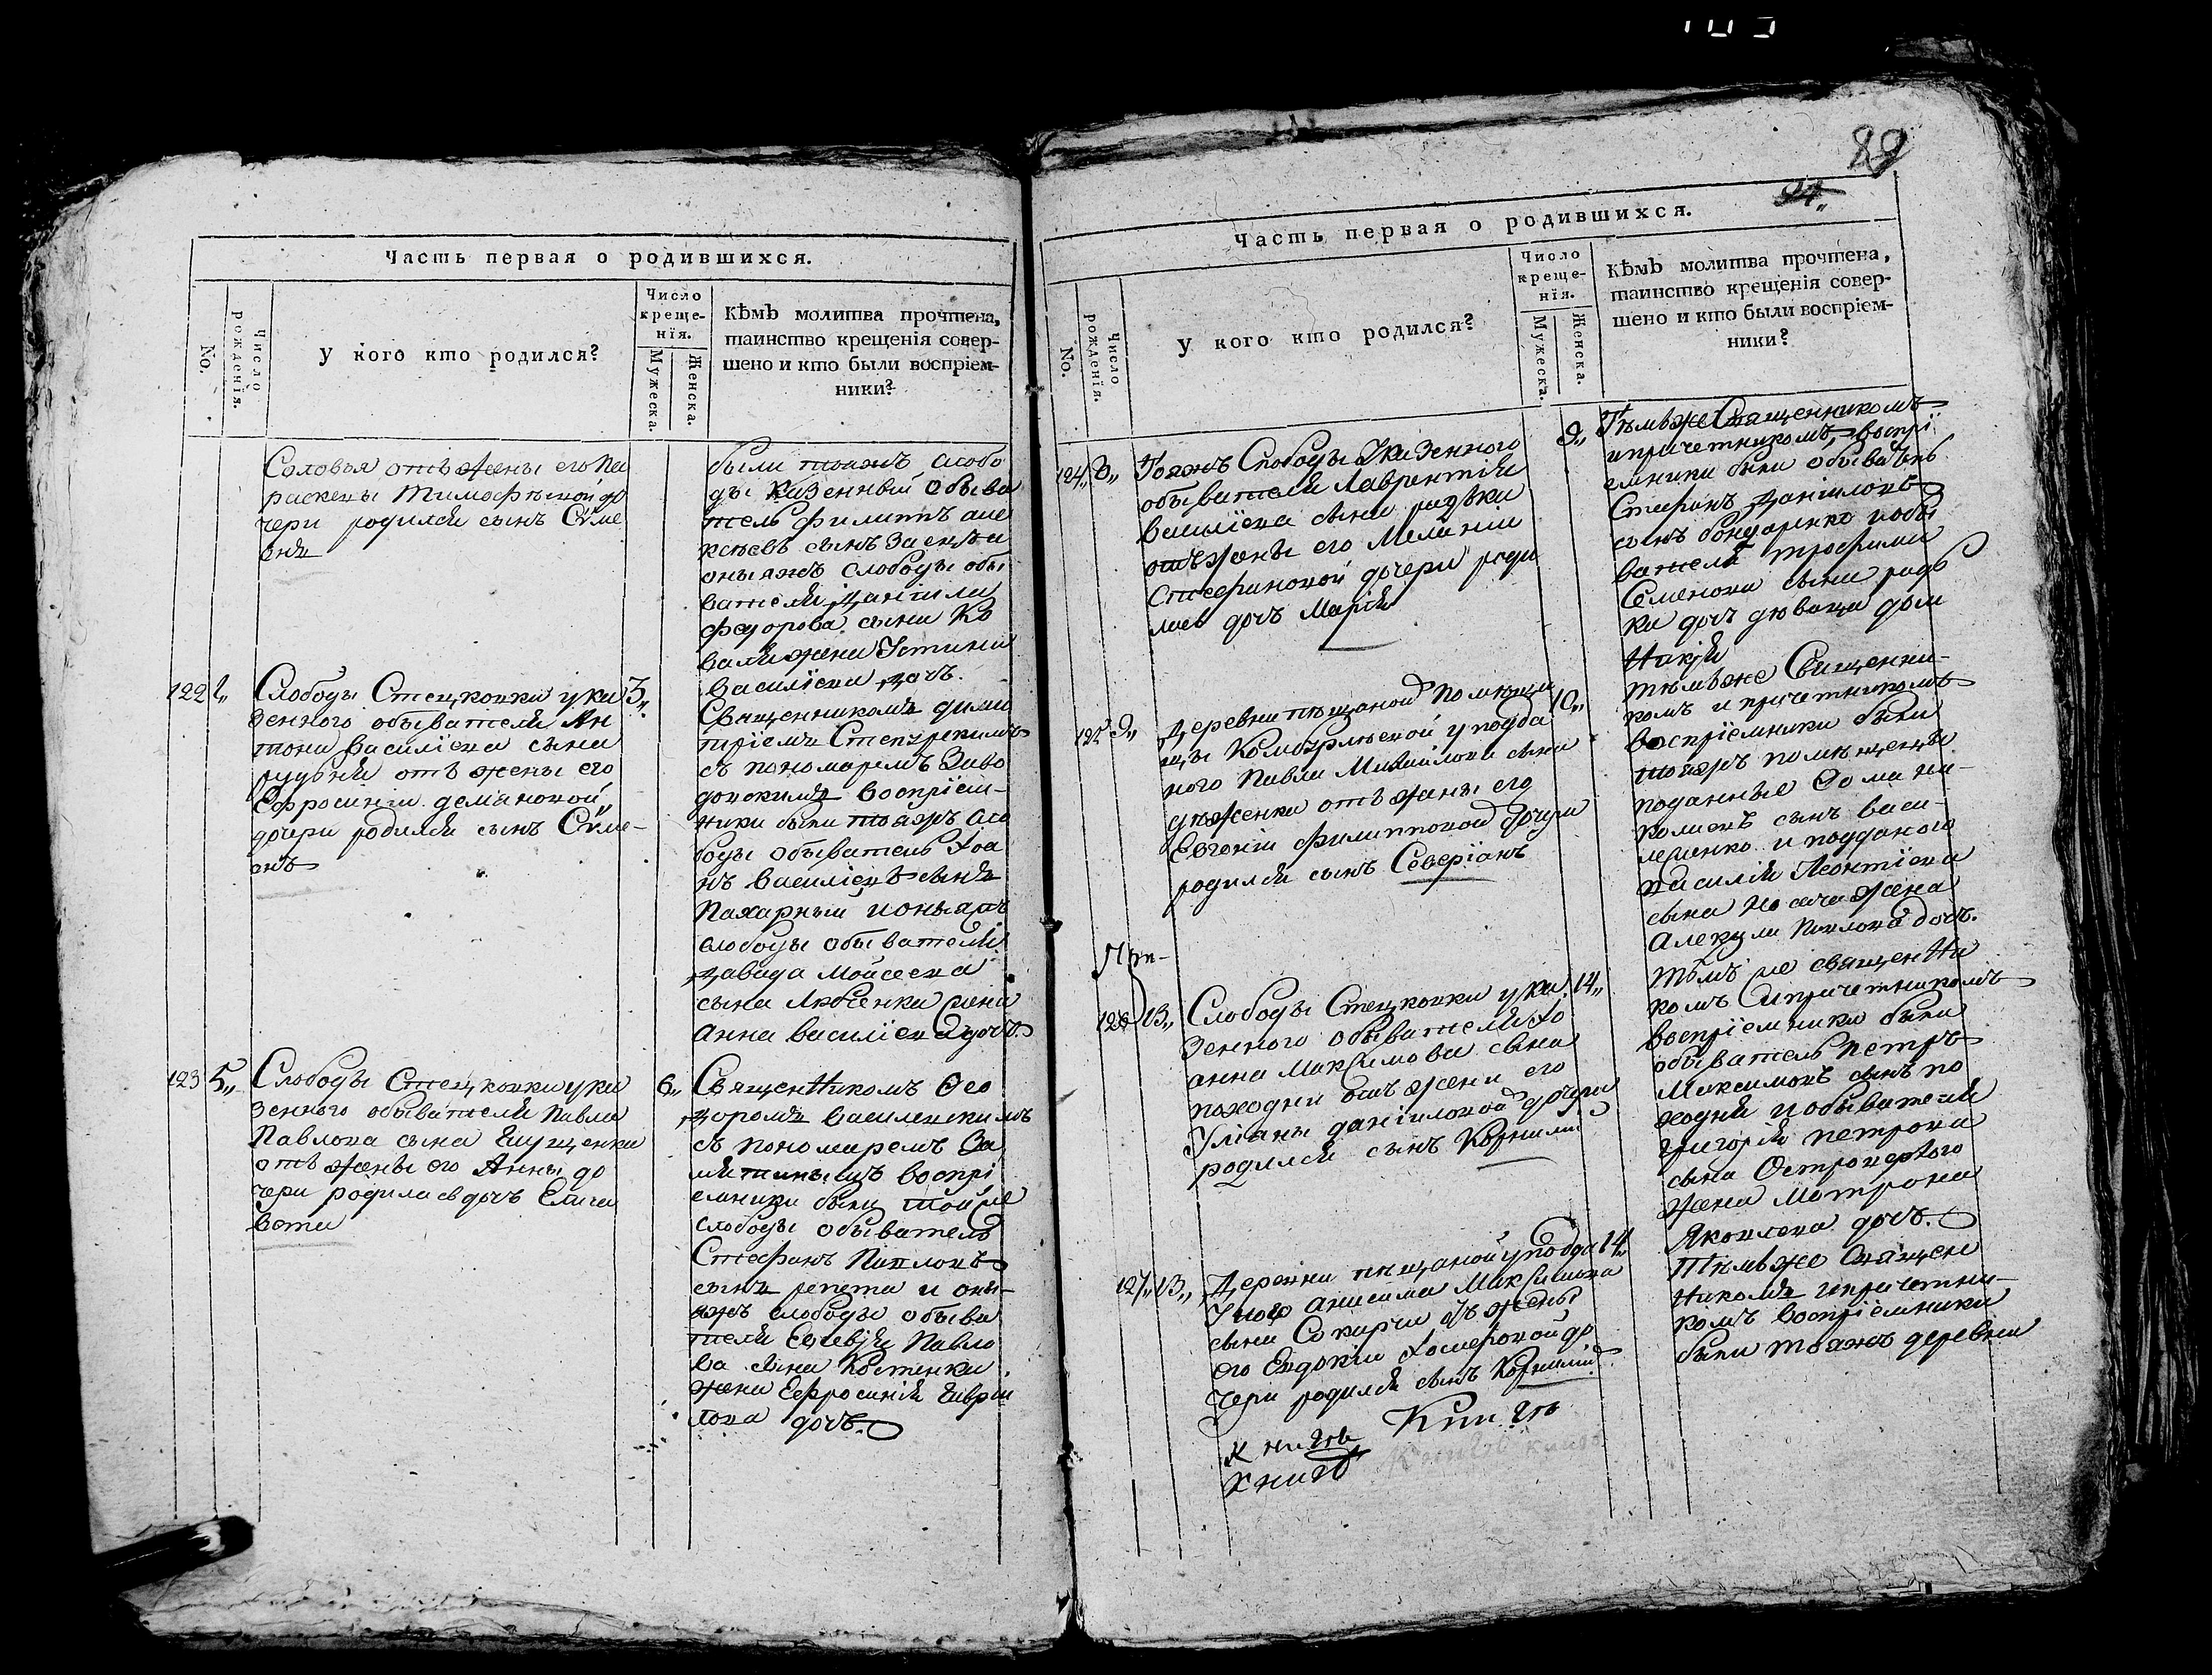 89
94„
Часть первая о родившихся.
No.
Число рожденія.
У кого кто родился?
Число креще-
нія.
Мужеска.
Женска.
Кѣмъ молитва прочтена,
таинство крещенія совер-
шено и кто были воспріем-
ники?
Соловья отъ жены его Па
раскевы Тимофѣевой до
чери родился сынъ Сѵме
онъ
были тояжъ слобо
ды казенный обыва
тель Филиппъ але
ксѣевъ сынъ Заецъ и
оныяжъ слободы обы
вателя Данила
Федорова сына Ко
валя жена Устинья
Василіева дочь.
122
Слободы Стецковки у ка
3„
зеннаго обывателя Ан
тона Василіева сына
рудня отъ жены его
Ефросиніи демановой
дочери родился сынъ Сѵме-
онъ
Священникомъ дими
тріемъ
съ пономаремъ Заво
довскимъ воспріем-
ники были тояжъ сло
боды обыватель Іоа
нъ Василіевъ сынъ
Пахарный и оныяжъ
слободы обывателя
Давида Мойсеева
сына Любченка жена
Анна Василіева дочь.
123
5„
Слободы Стецковки у ка
зеннаго обывателя Павла
Павлова сына Ющенка
отъ жены его Анны до
чери родилась дочь Елиса
вета
6„
Священникомъ Ѳео
доромъ Василевскимъ
съ пономаремъ За
воспрі
емники были той же
слободы обыватель
Стефанъ Павловъ
сынъ репета и оны-
яжъ слободы обыва
теля Евсевія Павло
ва сына Костенка
жена Ефросинія Гаврі
лова дочь.
Часть первая о родившихся.
No.
Число рожденія.
У кого кто родился?
Число
креще-
нія.
Мужеска.
Женска.
Кѣмъ молитва прочтена,
таинство крещенія совер-
шено и кто были воспріем-
ники?
124„
8„
Тояжъ Слободы у казенного
обывателя Лаврентія
Василіева сына радьки
отъ жены его Меланіи
Стефановой дочери роди
лась дочь Марія
9„
Тѣмъ же Священникомъ
и причетникомъ, воспрі
емники были обыватель
Стефанъ Даніиловъ
сынъ бондаренко и обы
вателя трофима
Семенова сына радь
ки дочь дѣвица дом
никія
125
9„
Деревни пѣщаной помѣщи
цы Комбурлѣевой у подда
ного Павла Михайлова сына
дѣженка отъ жены его
Евгеніи Филипповой дочери
родился сынъ Северіанъ
10„
тѣмъ же Священни-
комъ и причетникомъ
воспріемники были
тояжъ помѣщицы
поданные
сынъ васи-
ленко и подданого
Василія Леонтіева
сына Носача жена
Павлова дочь.
126
13„
Слободы Стецковки у ка
зенного обывателя Іо
анна Максимова сына
походни отъ жены его
Уліаны даніиловой дочери
родился сынъ Корнилій
14„
тѣмъ же священни
комъ и причетникомъ
воспріемники были
обыватель петръ
Максимовъ сынъ по
ходня и обывателя
григорія петрова
сына Островерхого
жена Матрона
Яковлева дочь.
127„
13„
Деревни пѣщаной у подда
14„
ного анисима Максимова
сына Сокирки отъ жены
его Евдокіи Іосифовой до
чери родился сынъ Корнилій
Тѣмъ же священ
никомъ и причетни-
комъ воспріемники
были тояжъ деревни
Книгъ
Книгъ
Книгъ